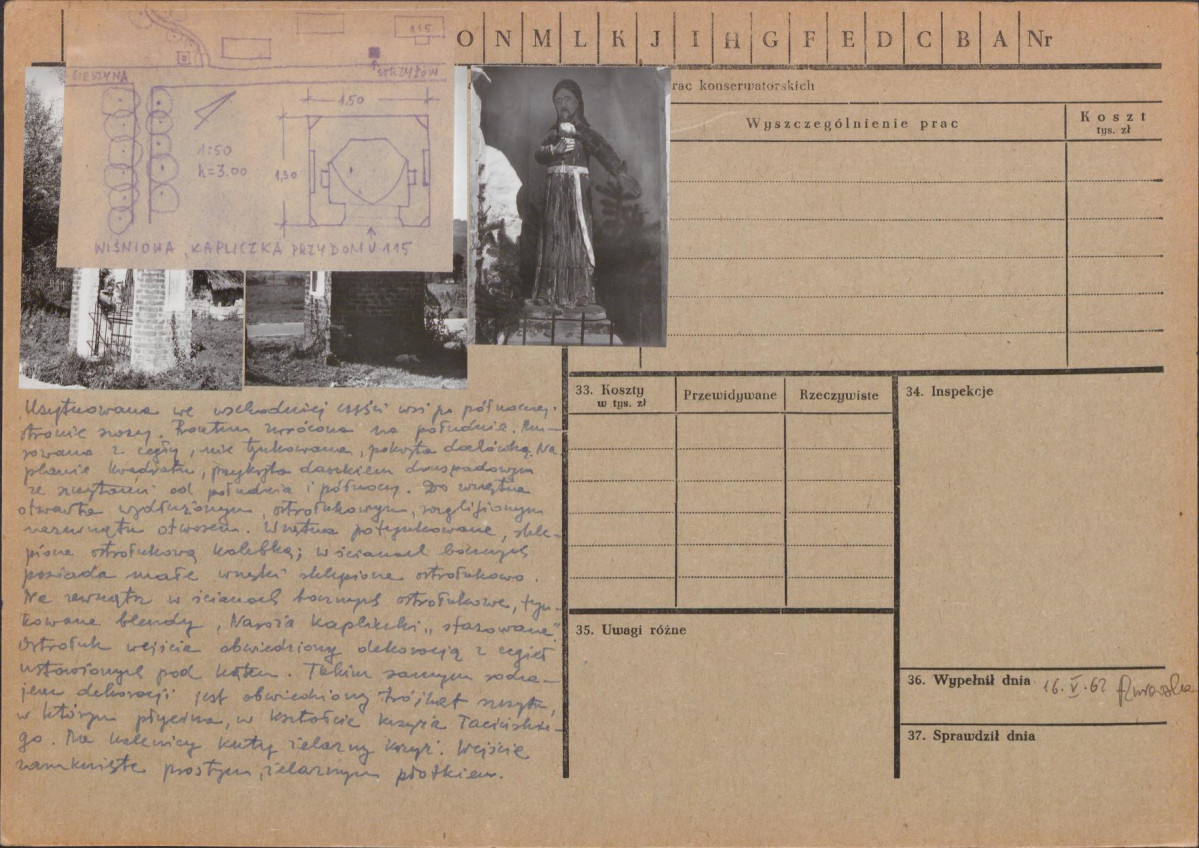 O N M L K J I H G F E D C B A Nr
115
CIESZYNA
STRZYŻÓW
1.50
1:50
h=3.00
1,50
WIŚNIOWA, KAPLICZKA PRZY DOMU 115
rac konserwatorskich
Wyszczególnienie prac
Koszt
tys. zł
Usytuowana we wschodniej części wsi po północnej
stronie szosy. Frontem zwrócona na południe. Mu-
rowana z cegły, nie tynkowana, pokryta dachówką. Na
planie kwadratu, przykryta daszkiem dwuspadowym
ze szczytami od południa i północy. Do wnętrza
otwarta wydłużonym, ostrołukowym, rozglifionym
nazewnątrz otworem. Wnętrze potynkowane, skle-
pione ostrołukową kolebką; w ścianach bocznych
posiada małe wnęki sklepione ostrołukowo.
Na zewnątrz w ścianach bocznych ostrołukowe, tyn-
kowane blendy. Naroża kapliczki "sfazowane".
Ostrołuk wejścia obwiedziony dekoracją z cegieł
ustawionych pod kątem. Takim samym rodza-
jem dekoracji jest obwiedziony trójkąt szczytu,
w którym płycina, w kształcie krzyża łacińskie-
go. Na kalenicy kuty żelazny krzyż. Wejście
zamknięte prostym, żelaznym płotkiem.
33. Koszty
w tys. zł
Przewidywane
Rzeczywiste
34. Inspekcje
35. Uwagi różne
36. Wypełnił dnia 16.V.62
37. Sprawdził dnia